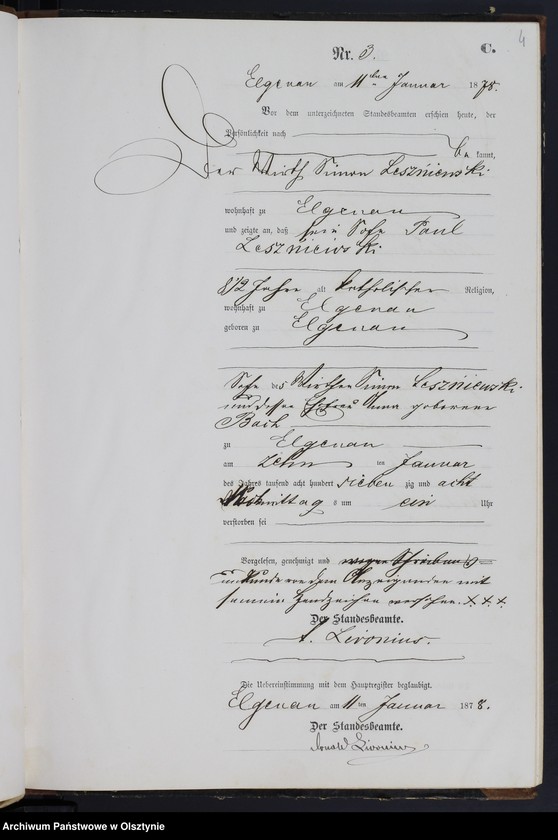 4
Nr. 3.
C.
Elgenau am 11ten Januar 1878.
Vor dem unterzeichneten Standesbeamten erschien heute, der
Persönlichkeit nach
be kannt,
der Wirth Simon Leszńiewski
wohnhaft zu Elgenau
und zeigte an, daß sein Sohn Paul
Leszńiewski
8 1/2 Jahre alt katholischer Religion,
wohnhaft zu Elgenau
geboren zu Elgenau
Sohn des Wirthen Simon Leszńiewski
und dessen Ehefrau Anna geborene
Bach
zu Elgenau
am zehn ten Januar
des Jahres tausend acht hundert sieben zig und acht
mittag s um ein Uhr
verstorben sei
Vorgelesen, genehmigt und wegen Schreibens
unkunde von dem Anzeigenden mit
seinem Handzeichen versehen. + + +
Der Standesbeamte.
A. Livonius.
Die Uebereinstimmung mit dem Hauptregister beglaubigt.
Elgenau am 11 ten Januar 1878.
Der Standesbeamte.
Arnold Livonius
Archiwum Państwowe w Olsztynie